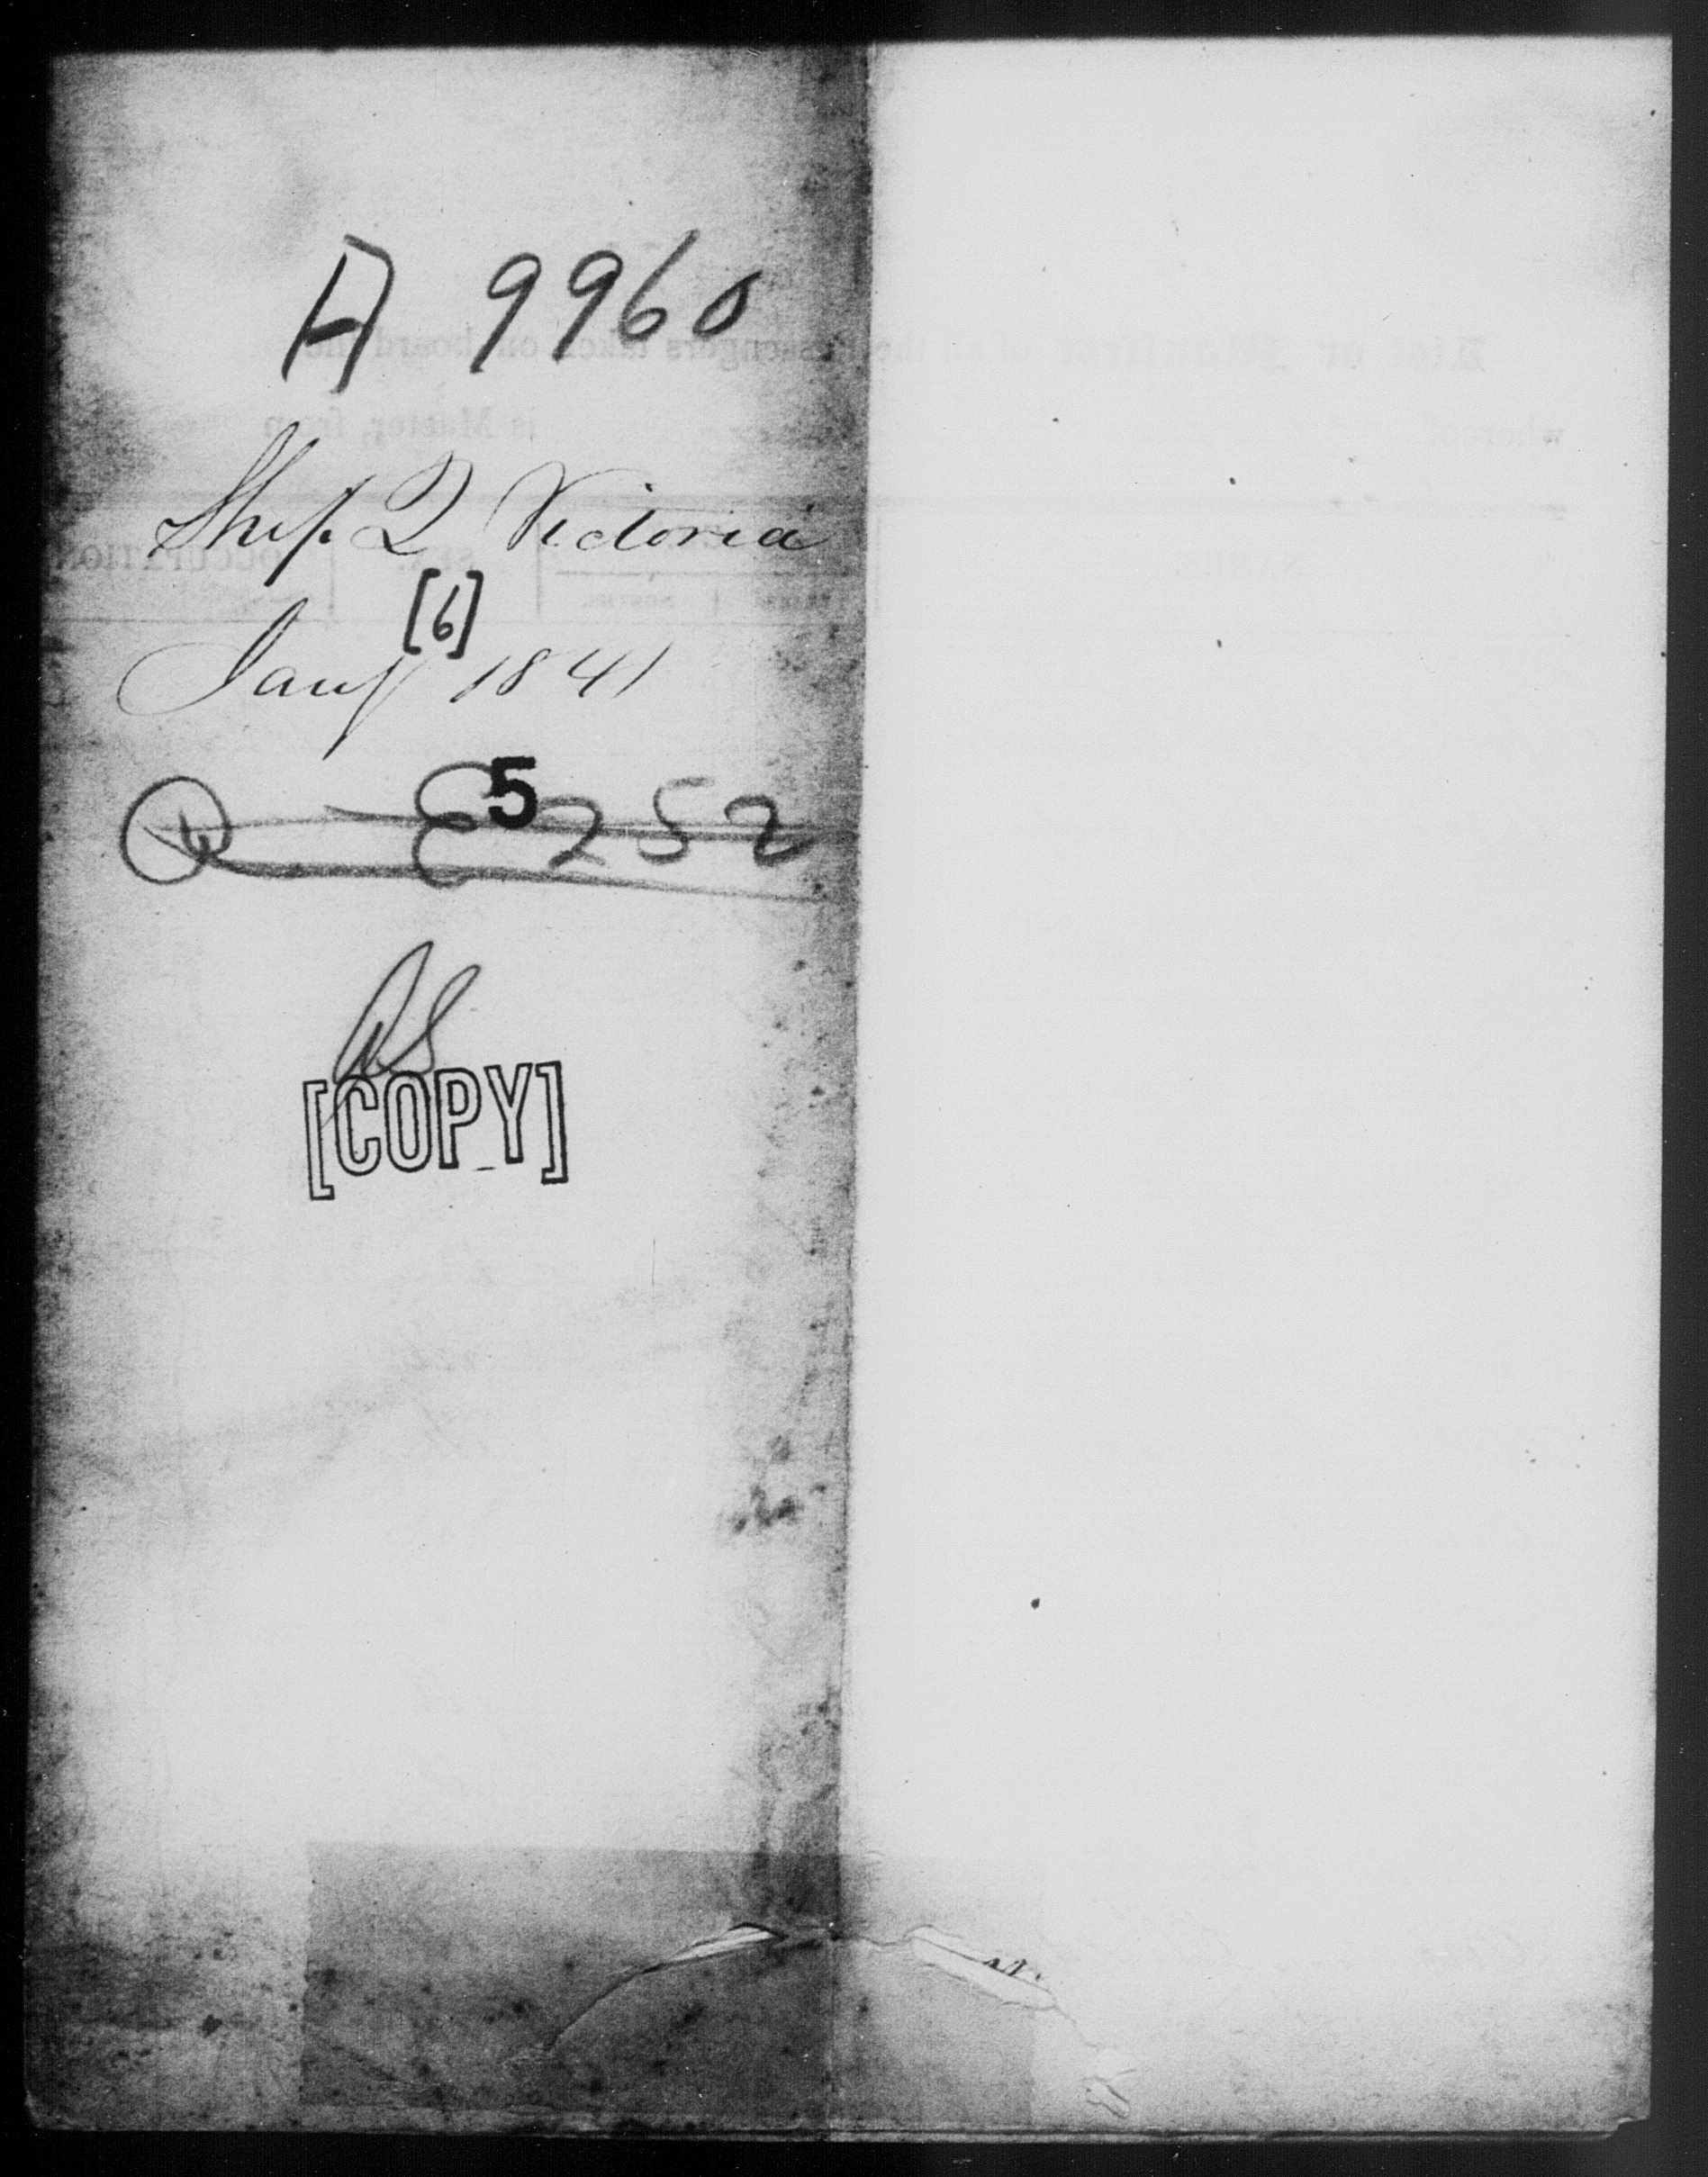 A 9960
Ship Q Victoria
[6]
Jany 1841
5
E 252
[COPY]